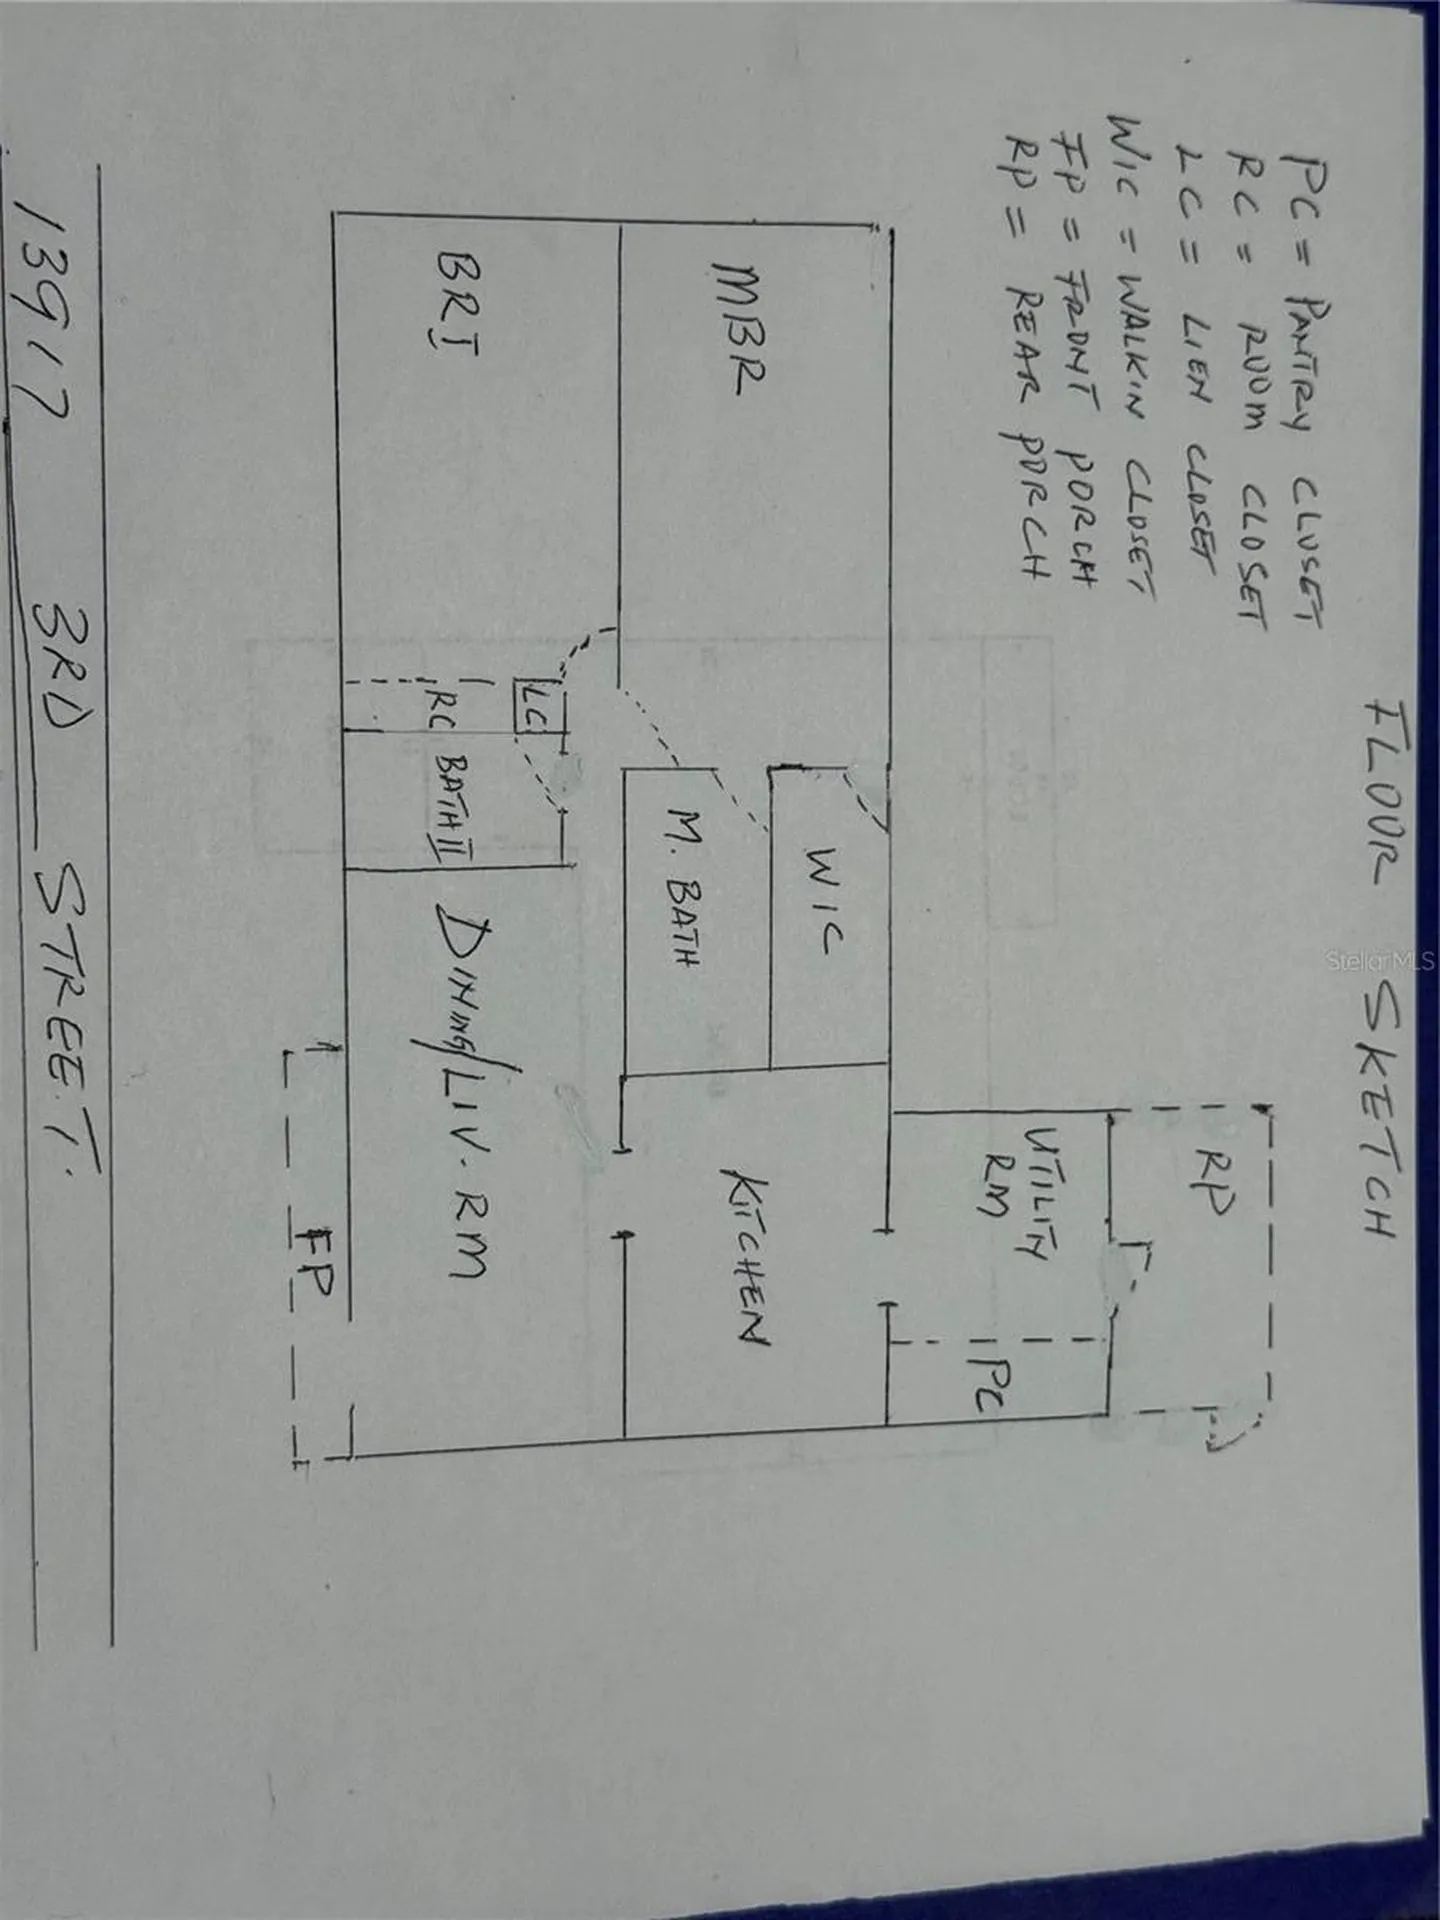 FLOOR SKETCH
PC = PANTRY CLOSET
RC = ROOM CLOSET
LC = LIEN CLOSET
WIC = WALKIN CLOSET
FP = FRONT PORCH
RP = REAR PORCH
RP
UTILITY
RM
PC
MBR
WIC
M. BATH
KITCHEN
BRI
LC
RC
BATH II
DINING/LIV. RM
FP
13917 3RD STREET.
StellarMLS